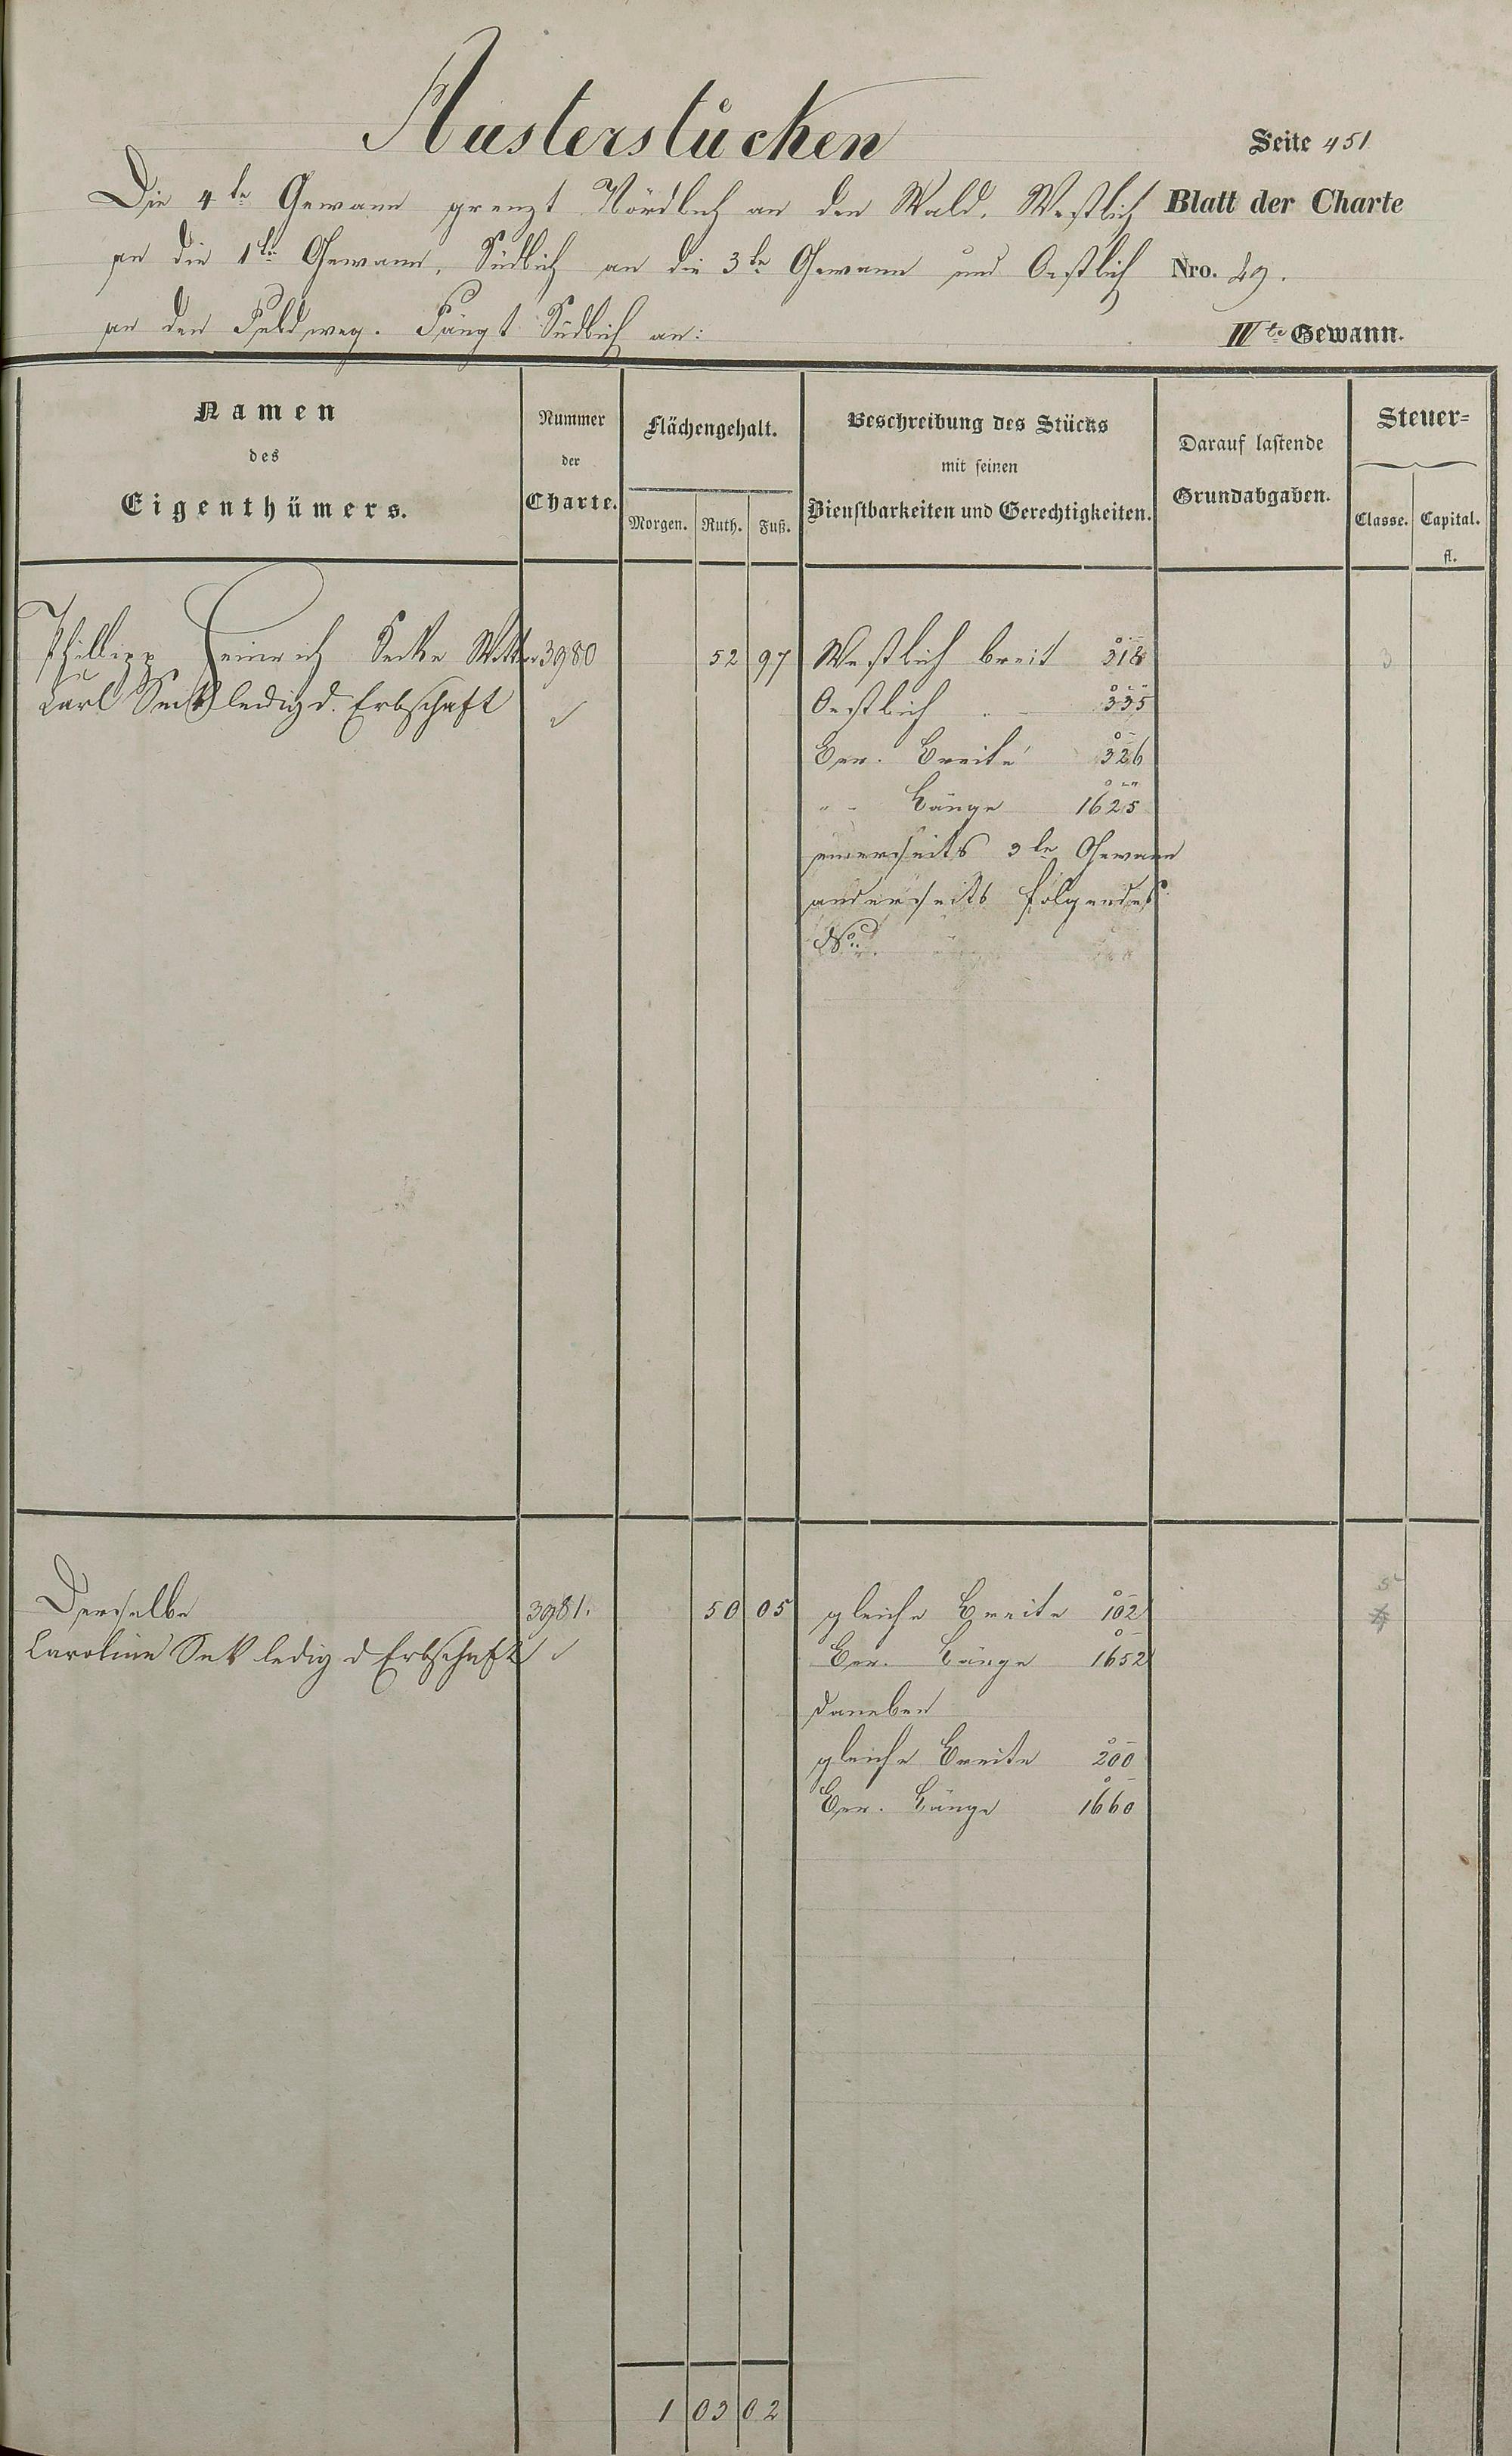 Austerstücken
Seite 451
Die 4te Gewann grenzt Nördlich an den Wald, Westlich
Blatt der Charte
an die 1te Gewann, Südlich an die 3te Gewann und Oestlich
Nro. 29.
an den Feldweg. Fängt Südlich an:
IVte Gewann.
Namen des Eigenthümers.
Nummer der Charte.
Flächengehalt.
Morgen. Ruth. Fuß.
Beschreibung des Stücks mit seinen Dienstbarkeiten und Gerechtigkeiten.
Darauf lastende Grundabgaben.
Steuer=
Classe. Capital.
fl.
Phillipp Heinrich 3980 52 97 Westlich breit 318 3
Carl Seik ledig d. Erbschaft Oestlich 335
Ger. Breite 326
" - Länge 1625
einerseits 3te Gewann
anderseits folgendes
No.
Derselbe 3981. 50 05 gleiche Breite 102
Caroline Sek ledig d Erbschaft Ger. Länge 1652
daneben
gleiche Breite 200
Ger. Länge 1660
1 03 02